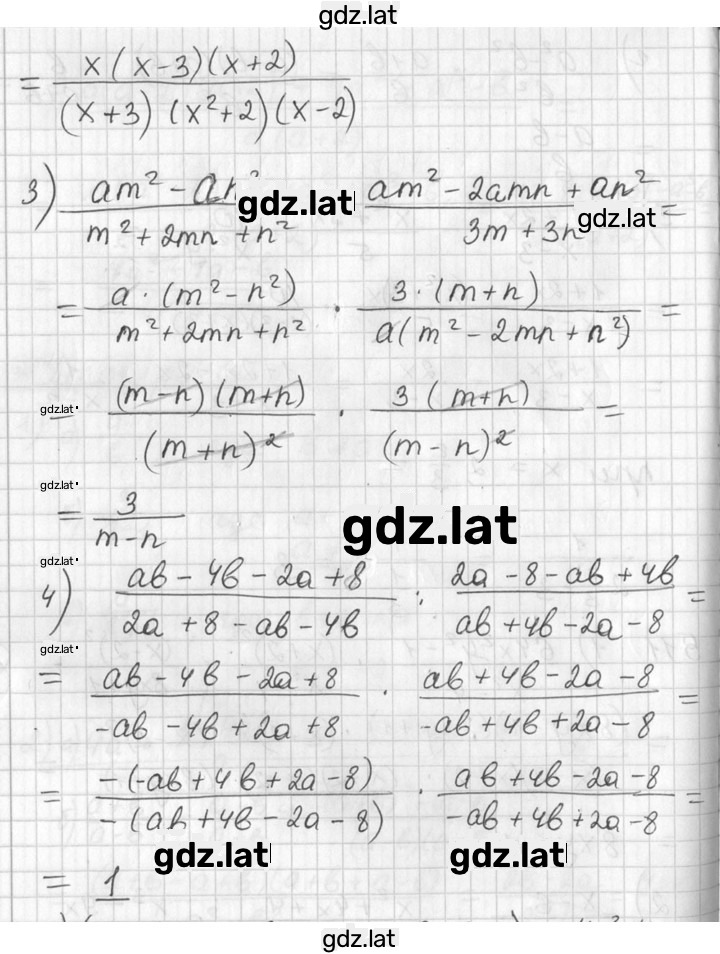 gdz.lat
= x(x-3)(x+2) / (x+3)(x²+2)(x-2)
3) am² - an² / m² + 2mn + n² gdz.lat am² - 2amn + an² / 3m + 3n gdz.lat =
= a·(m² - n²) / m² + 2mn + n² · 3·(m+n) / a(m² - 2mn + n²) =
gdz.lat = (m-n)(m+n) / (m+n)² · 3(m+n) / (m-n)² =
gdz.lat
= 3 / m-n gdz.lat
gdz.lat
4) ab - 4b - 2a + 8 / 2a + 8 - ab - 4b : 2a - 8 - ab + 4b / ab + 4b - 2a - 8 =
gdz.lat
= ab - 4b - 2a + 8 / -ab - 4b + 2a + 8 · ab + 4b - 2a - 8 / -ab + 4b + 2a - 8 =
= -(-ab + 4b + 2a - 8) / -(ab + 4b - 2a - 8) · ab + 4b - 2a - 8 / -ab + 4b + 2a - 8 =
gdz.lat gdz.lat
= 1
gdz.lat